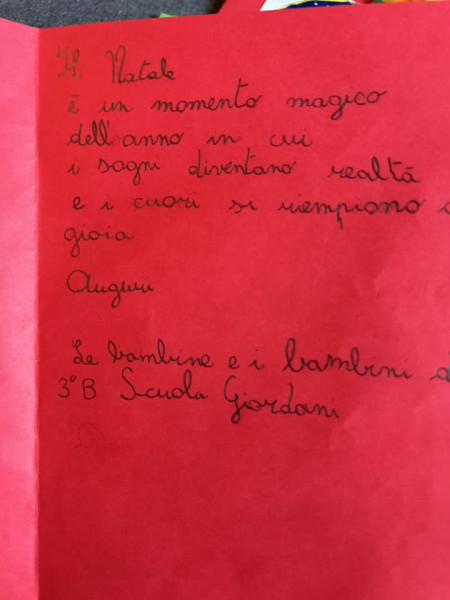 Il Natale
è un momento magico
dell'anno in cui
i sogni diventano realtà
e i cuori si riempiono
gioia
Auguri
Le bambine e i bambini
3°B Scuola Giordani